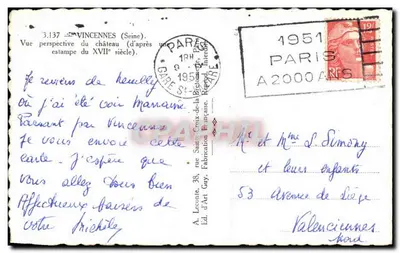 3.137 - VINCENNES (Seine).
Vue perspective du château (d'après une
estampe du XVIIe siècle).
Je reviens de Neuilly
où j'ai été voir Marraine
Passant par Vincennes
Je vous envoie cette
carte. J'espère que
vous allez tous bien
Affectueux baisers de
votre Michèle
A. Leconte, 38, rue Sainte-Croix-de-la-Bretonnerie
Ed. d'Art Guy. Fabrication Française.
PARIS
18H
1951
GARE ST-LAZARE
1951
PARIS
A 2000 ANS
Mr et Mme S. Simony
et leurs enfants
53 Avenue de Liège
Valenciennes
Nord